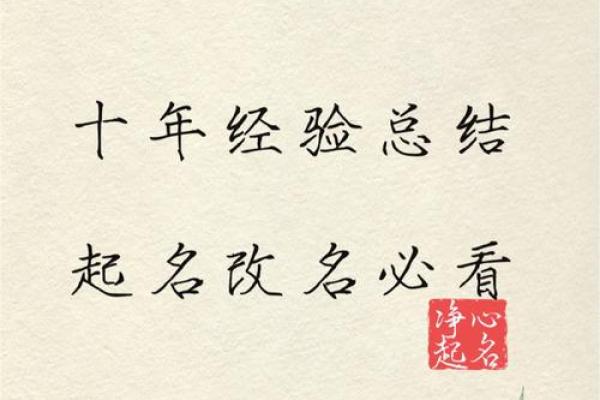 十年经验总结
起名改名必看
净心
起名